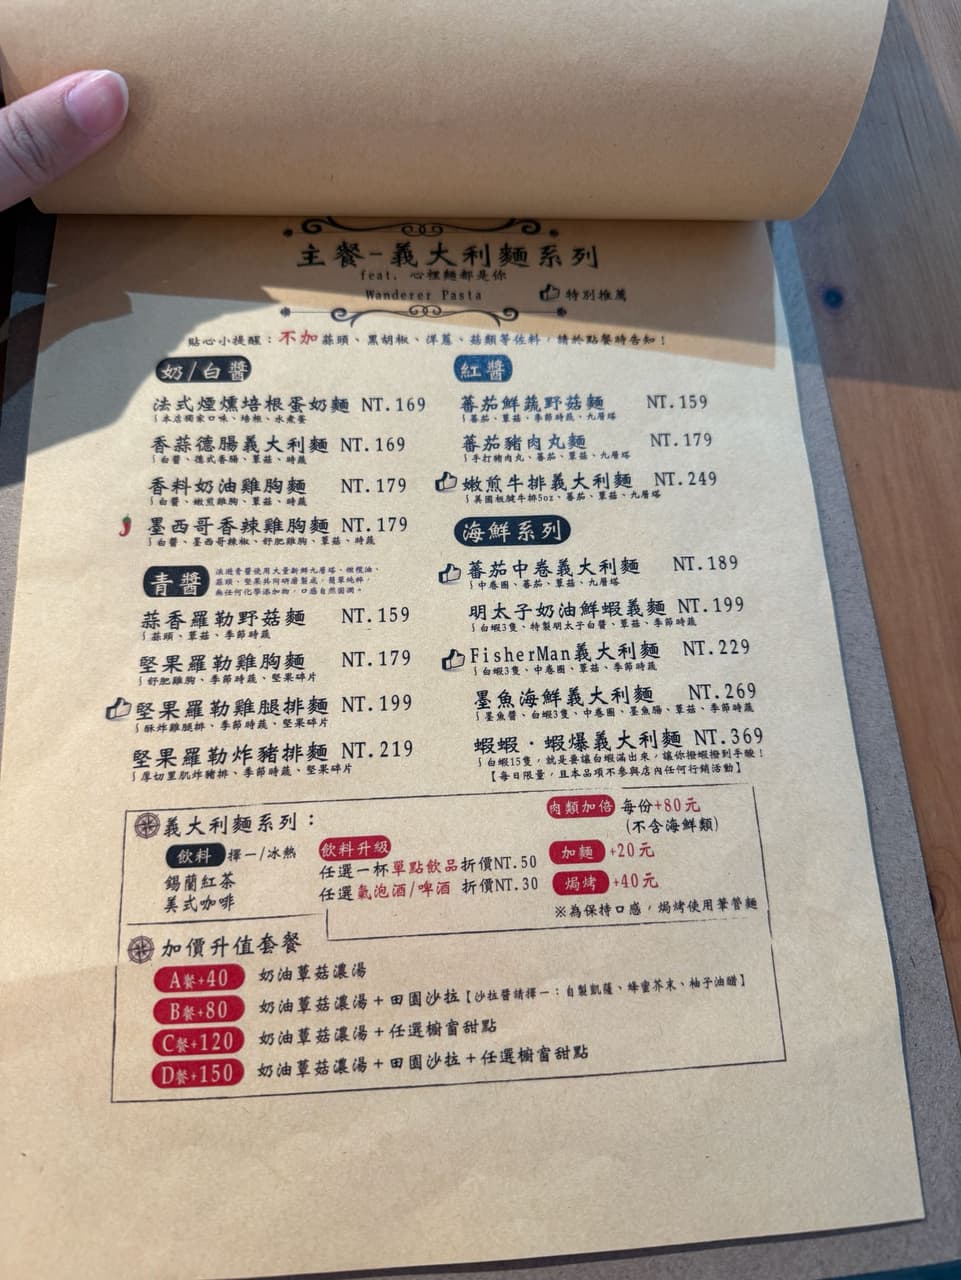 主餐-義大利麵系列
feat. 心裡麵都是你
Wanderer Pasta
特別推薦
貼心小提醒：不加蒜頭、黑胡椒、洋蔥、菇類等佐料，請於點餐時告知！
奶/白醬
法式煙燻培根蛋奶麵 NT.169
~本店獨家口味、培根、水煮蛋
香蒜德腸義大利麵 NT.169
~白醬、德式香腸、蕈菇、時蔬
香料奶油雞胸麵 NT.179
~白醬、嫩煎雞胸、蕈菇、時蔬
墨西哥香辣雞胸麵 NT.179
~白醬、墨西哥辣椒、舒肥雞胸、蕈菇、時蔬
青醬
浪遊青醬使用大量新鮮九層塔、橄欖油、
蒜頭、堅果共同研磨製成，簡單純粹，
無任何化學添加物，口感自然圓潤。
蒜香羅勒野菇麵 NT.159
~蒜頭、蕈菇、季節時蔬
堅果羅勒雞胸麵 NT.179
~舒肥雞胸、季節時蔬、堅果碎片
堅果羅勒雞腿排麵 NT.199
~酥炸雞腿排、季節時蔬、堅果碎片
堅果羅勒炸豬排麵 NT.219
~厚切里肌炸豬排、季節時蔬、堅果碎片
紅醬
蕃茄鮮蔬野菇麵 NT.159
~蕃茄、蕈菇、季節時蔬、九層塔
蕃茄豬肉丸麵 NT.179
~手打豬肉丸、蕃茄、蕈菇、九層塔
嫩煎牛排義大利麵 NT.249
~美國板腱牛排5oz、蕃茄、蕈菇、九層塔
海鮮系列
蕃茄中卷義大利麵 NT.189
~中卷圈、蕃茄、蕈菇、九層塔
明太子奶油鮮蝦義麵 NT.199
~白蝦3隻、特製明太子白醬、蕈菇、季節時蔬
FisherMan義大利麵 NT.229
~白蝦3隻、中卷圈、蕈菇、季節時蔬
墨魚海鮮義大利麵 NT.269
~墨魚醬、白蝦3隻、中卷圈、墨魚腸、蕈菇、季節時蔬
蝦蝦．蝦爆義大利麵 NT.369
~白蝦15隻，就是要讓白蝦滿出來，讓你撥蝦撥到手酸！
【每日限量，且本品項不參與店內任何行銷活動】
義大利麵系列：
飲料 擇一/冰熱
錫蘭紅茶
美式咖啡
飲料升級
任選一杯單點飲品折價NT.50
任選氣泡酒/啤酒 折價NT.30
肉類加倍 每份+80元
(不含海鮮類)
加麵 +20元
焗烤 +40元
※為保持口感，焗烤使用筆管麵
加價升值套餐
A餐+40 奶油蕈菇濃湯
B餐+80 奶油蕈菇濃湯＋田園沙拉【沙拉醬請擇一：自製凱薩、蜂蜜芥末、柚子油醋】
C餐+120 奶油蕈菇濃湯＋任選櫥窗甜點
D餐+150 奶油蕈菇濃湯＋田園沙拉＋任選櫥窗甜點